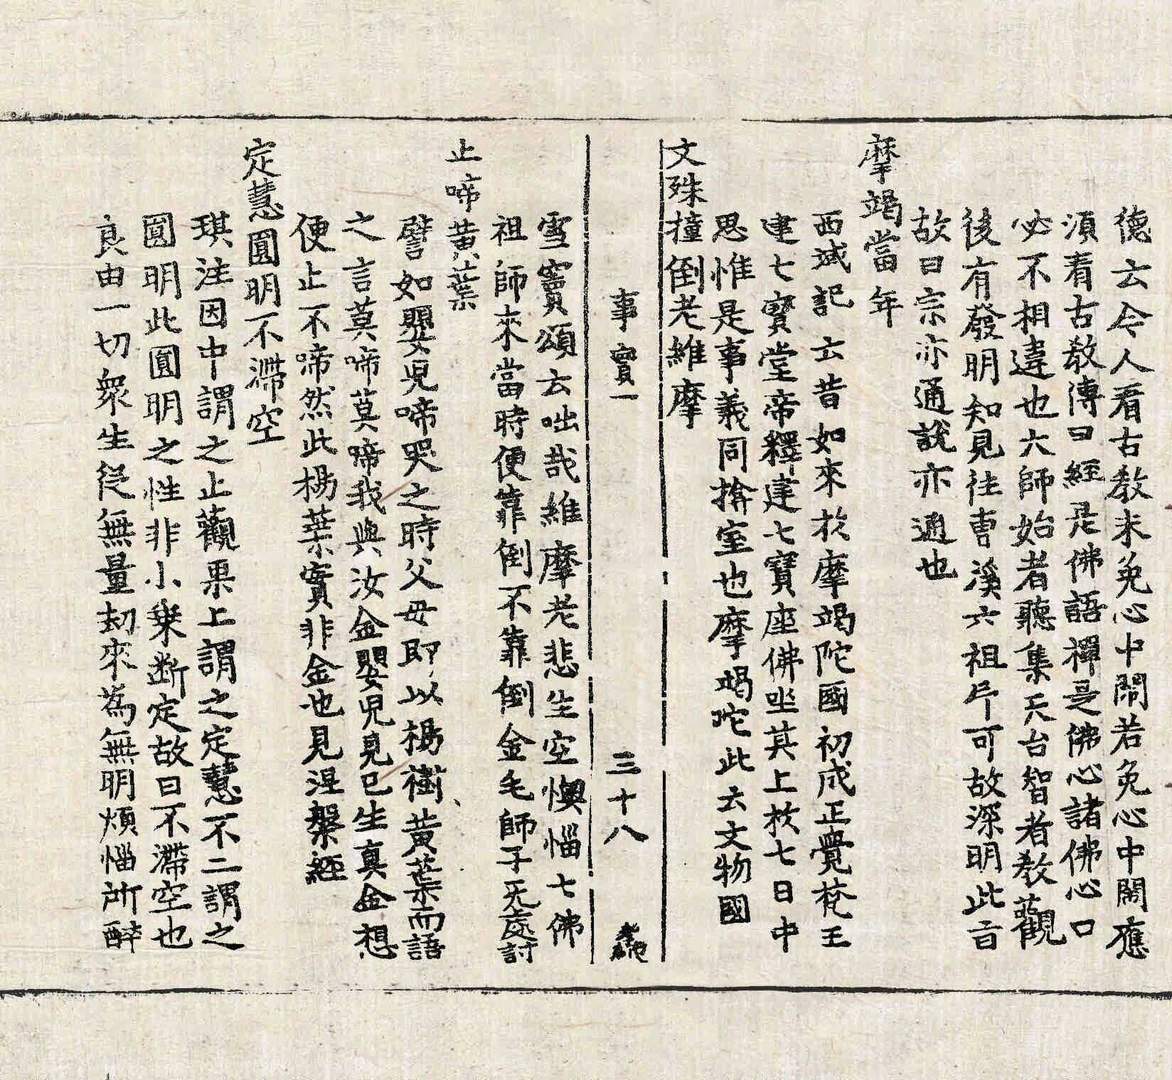 德云今人看古教未免心中鬧若免心中鬧應
須看古教傳曰經是佛語禪是佛心諸佛心口
必不相違也六師始者聽集天台智者教觀
後有發明知見往曹溪六祖印可故深明此旨
故曰宗亦通說亦通也
摩竭當年
西域記云昔如來於摩竭陀國初成正覺梵王
建七寶堂帝釋建七寶座佛坐其上於七日中
思惟是事義同揜室也摩竭陀此云文物國
文殊撞倒老維摩
事實一 三十八
雪竇頌云咄哉維摩老悲生空懊惱七佛
祖師來當時便靠倒不靠倒金毛師子无處討
止啼黃葉
譬如嬰兒啼哭之時父母即以楊樹黃葉而語
之言莫啼莫啼我與汝金嬰兒見已生真金想
便止不啼然此楊葉實非金也見涅槃經
定慧圓明不滯空
琪注因中謂之止觀果上謂之定慧不二謂之
圓明此圓明之性非小乗斷定故曰不滯空也
良由一切衆生從無量刼來為無明煩惱所醉